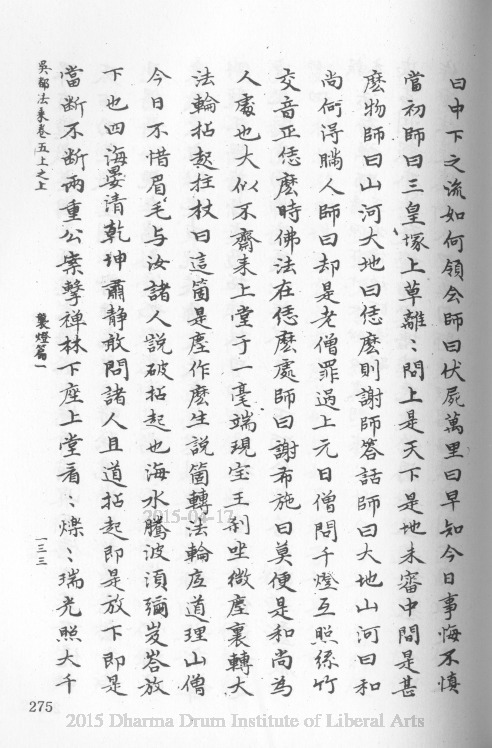 曰中下之流如何領会師曰伏屍萬里曰早知今日事悔不慎
當初師曰三皇塚上草離〻問上是天下是地未審中間是甚
麽物師曰山河大地曰恁麽則謝師答話師曰大地山河曰和
尚何得瞞人師曰却是老僧罪過上元日僧問千燈互照絲竹
交音正恁麽時佛法在恁麽處師曰謝布施曰莫便是和尚為
人處也大似不齋来上堂于一毫端現宝王刹坐微塵裏轉大
法輪拈起拄杖曰這箇是塵作麽生説箇轉法輪底道理山僧
今日不惜眉毛与汝諸人説破拈起也海水騰波須彌岌峇放
下也四海晏清乾坤肅静敢問諸人且道拈起即是放下即是
當断不断兩重公案擊禅林下座上堂看〻爍〻瑞光照大千
吳都法乘卷五上之上
襲燈篇一
一三三
275
2015-04-17
2015 Dharma Drum Institute of Liberal Arts